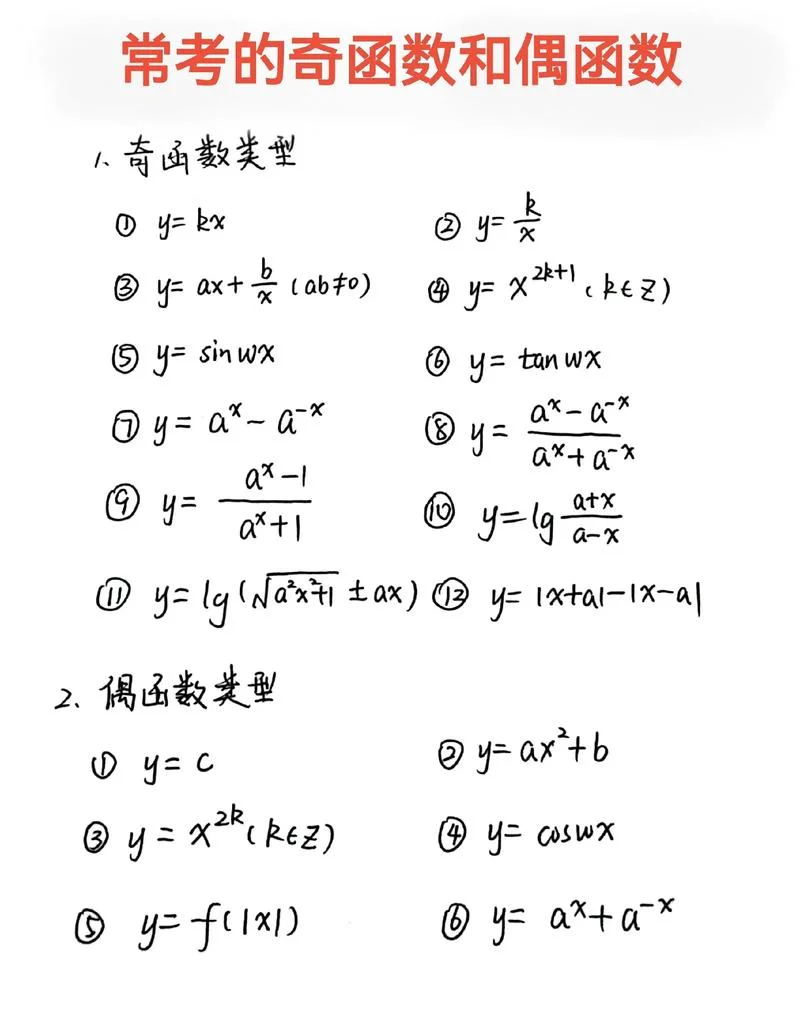 常考的奇函数和偶函数
1、奇函数类型
① y=kx ② y=k/x
③ y=ax+b/x (ab≠0) ④ y=x^{2k+1} (k∈Z)
⑤ y=sinwx ⑥ y=tanwx
⑦ y=a^x-a^{-x} ⑧ y=(a^x-a^{-x})/(a^x+a^{-x})
⑨ y=(a^x-1)/(a^x+1) ⑩ y=lg (a+x)/(a-x)
⑪ y=lg(√(a²x²+1) ±ax) ⑫ y=|x+a|-|x-a|
2、偶函数类型
① y=c ② y=ax²+b
③ y=x^{2k} (k∈Z) ④ y=coswx
⑤ y=f(|x|) ⑥ y=a^x+a^{-x}